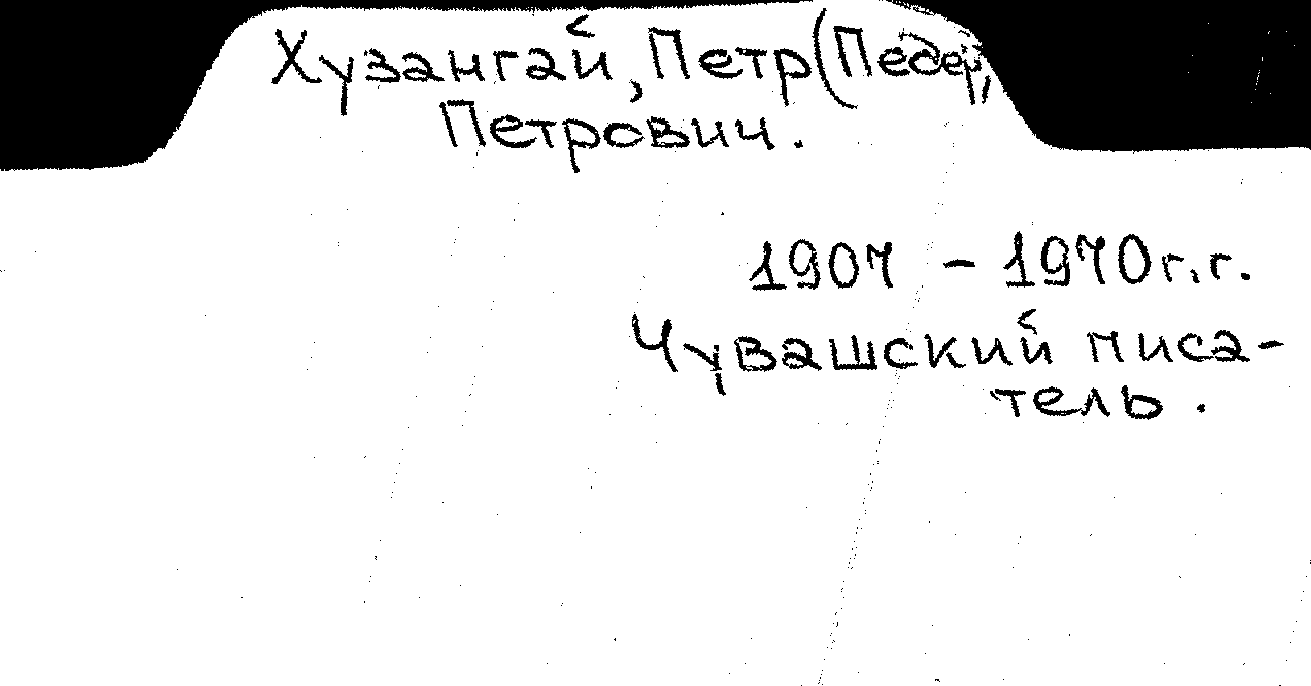 Хузангай, Петр (Педер)
Петрович.
1907 - 1970 г.г.
Чувашский писа-
тель.